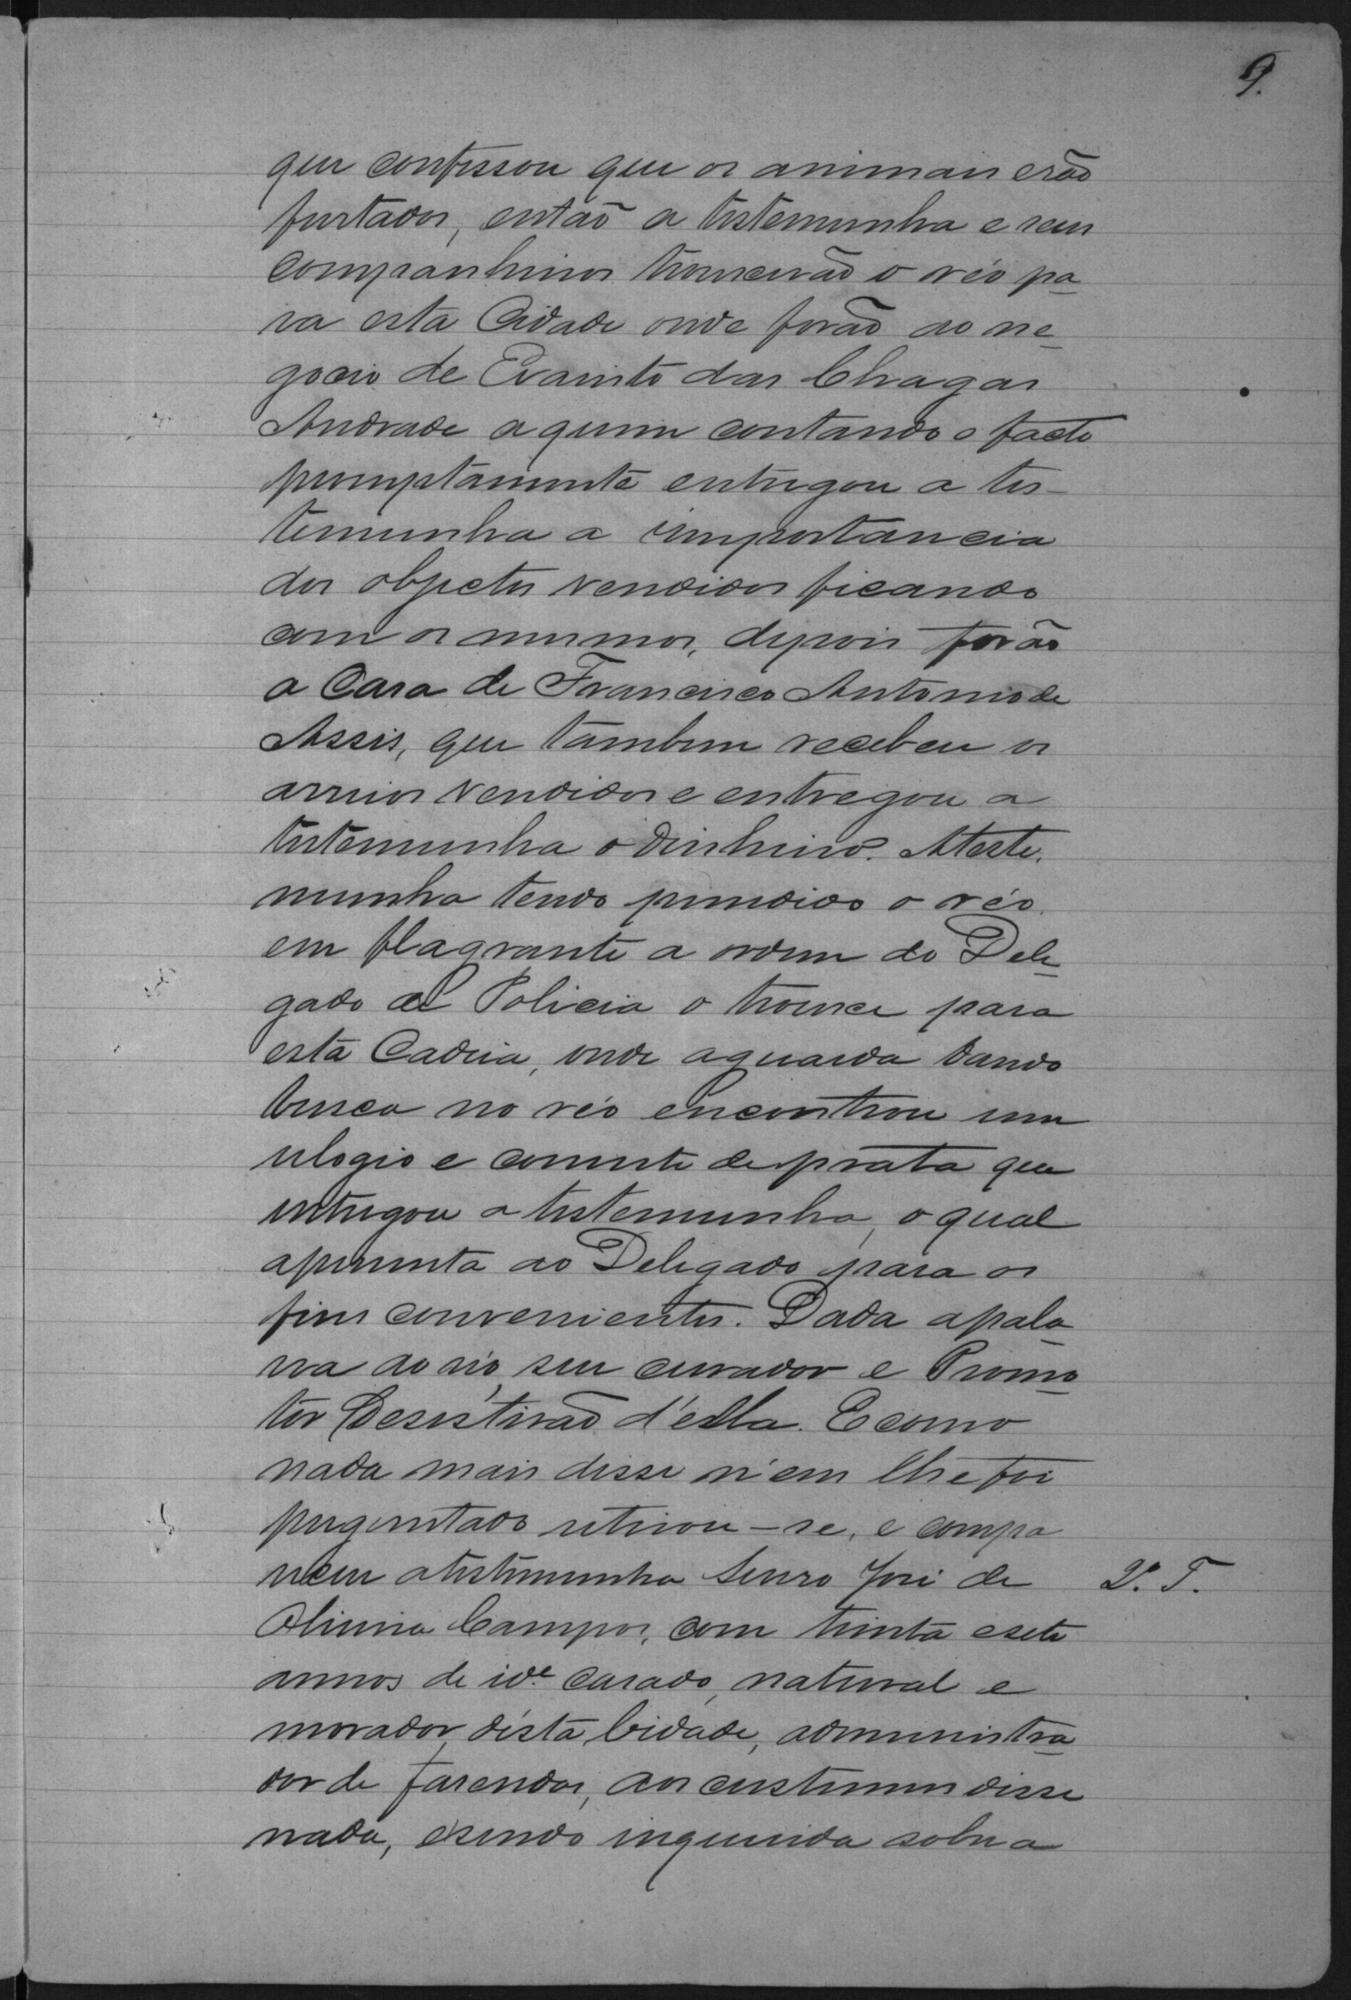 9.
que confessou que os animais erão
furtados, então a testemunha e seus
companheiros trouxerão o réo pa-
ra esta Cidade onde forão ao ne-
gocio de Evaristo das Chagas
Andrade a quem contando o facto
promptamente entregou a tes-
temunha a importancia
dos objectos vendidos ficando
com os mesmos, depois forão
a Casa de Francisco Antonio de
Assis, que tambem recebeu os
arreios vendidos e entregou a
testemunha o dinheiro. A teste-
munha tendo prendido o réo
em flagrante a ordem do Dele-
gado de Policia o trouce para
esta Cadeia, onde a guarda dando
busca no réo encontrou um
relogio e corrente de prata que
entregou a testemunha, o qual
apresenta ao Delegado para os
fins convenientes. Dada a pala-
vra ao réo, seu curador e Promo-
tor Desistirão d'ella. E como
nada mais disse n'em lhe foi
perguntado retirou-se, e compa
receu a testemunha José de
2ª. T.
Oliveira Campos, com trinta e sete
annos de id.e casado, natural e
morador d'esta Cidade, administra-
dor de fasendas, aos custumes disse
nada, e sendo inquerida sobre a